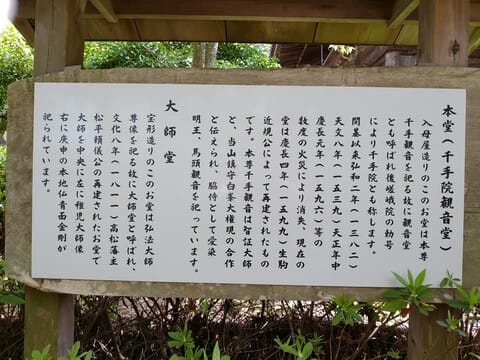 本堂(千手院観音堂)
入母屋造りのこのお堂は本尊
千手観音を祀る故に観音堂
とも呼ばれ後嵯峨院の勅号
により千手院とも称します。
開基以来弘和二年(一三八二)
天文八年(一五三九)天正年中
慶長元年(一五九六)等の
数度の火災により消失、現在の
堂は慶長四年(一五九九)生駒
近規公によって再建されたもの
です。本尊千手観音は智証大師
と、当山鎮守白峯大権現の合作
と伝えられ、脇侍として愛染
明王、馬頭観音を祀っています。
大師堂
宝形造りのこのお堂は弘法大師
尊像を祀る故に大師堂と呼ばれ、
文化八年(一八一一)高松藩主
松平頼儀公の再建されたお堂で
大師を中央に左に稚児大師像
右に庚申の本地仏青面金剛が
祀られています。